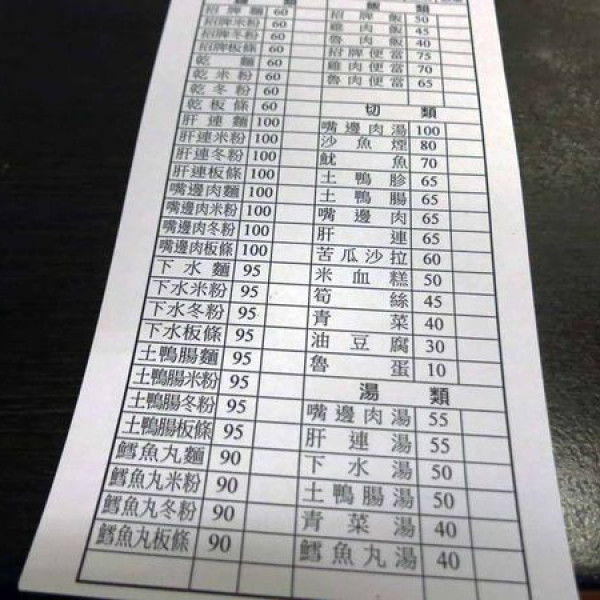 麵 類
招牌麵 60
招牌米粉 60
招牌冬粉 60
招牌板條 60
乾麵 60
乾米粉 60
乾冬粉 60
乾板條 60
肝連麵 100
肝連米粉 100
肝連冬粉 100
肝連板條 100
嘴邊肉麵 100
嘴邊肉米粉 100
嘴邊肉冬粉 100
嘴邊肉板條 100
下水麵 95
下水米粉 95
下水冬粉 95
下水板條 95
土鴨腸麵 95
土鴨腸米粉 95
土鴨腸冬粉 95
土鴨腸板條 95
鱈魚丸麵 90
鱈魚丸米粉 90
鱈魚丸冬粉 90
鱈魚丸板條 90
飯 類
招牌飯 50
雞肉飯 45
魯肉飯 40
招牌便當 75
雞肉便當 70
魯肉便當 65
切 類
嘴邊肉湯 100
沙魚煙 80
魷魚 70
土鴨胗 65
土鴨腸 65
嘴邊肉 65
肝連 65
苦瓜沙拉 60
米血糕 50
筍絲 45
青菜 40
油豆腐 30
魯蛋 10
湯 類
嘴邊肉湯 55
肝連湯 55
下水湯 50
土鴨腸湯 50
青菜湯 40
鱈魚丸湯 40